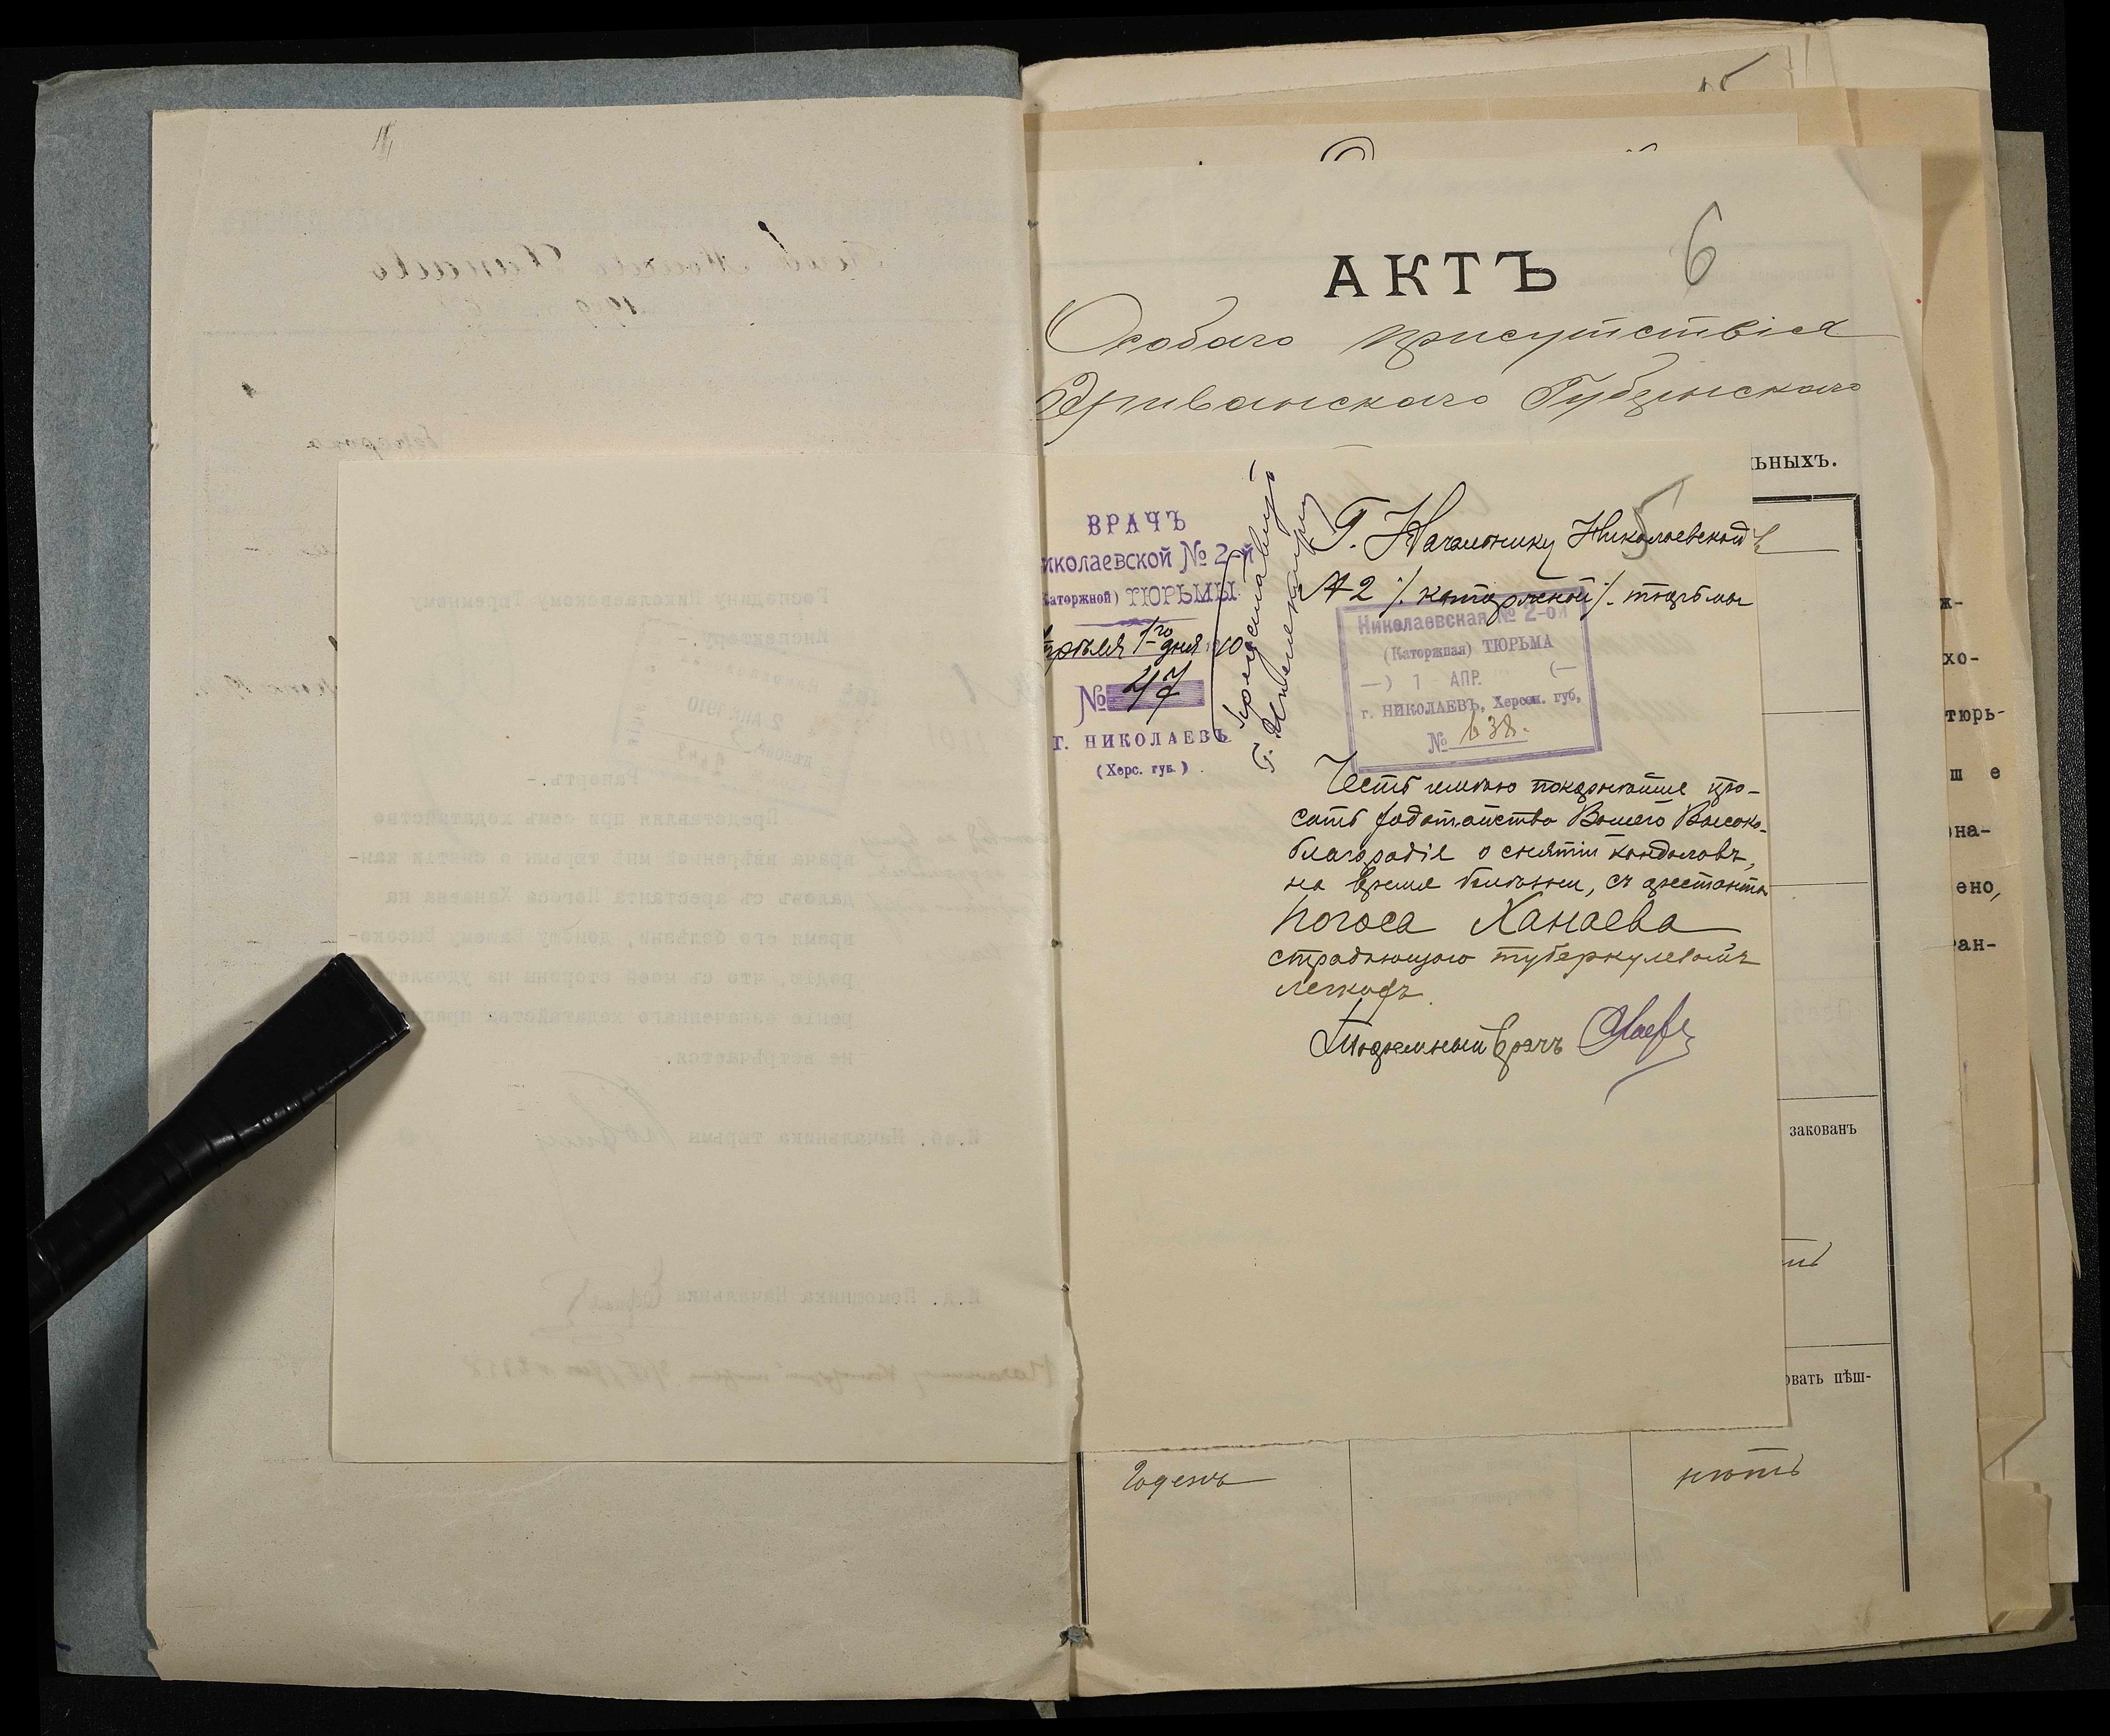 6
АКТЪ
Особаго присутствія
Эриванскаго Губернскаго
ьныхъ.
5
ВРАЧЪ
иколаевской № 2-й
Каторжной) ТЮРЬМЫ
Апрѣля 1го дня 1910
№ 47
Г. НИКОЛАЕВЪ
(Херс. губ.)
Г. Начальнику Николаевской
№ 2 /. каторжной /. тюрьмы
Николаевская № 2-ой
(Каторжная) ТЮРЬМА
—) 1 АПР. (—
г. НИКОЛАЕВЪ, Херсон. губ,
№ 638.
Честь имѣю покорнѣйше про-
сить ходатайства Вашего Высоко-
благородія о снятіи кандаловъ,
на время болѣзни, съ арестанта
Погоса Ханаева
страдающаго туберкулезомъ
легкихъ.
Тюремный врачъ
закованъ
овать пѣш-
Годенъ
нѣтъ
ж-
хо-
тюрь-
ш е
на-
ено,
ан-
Господину Николаевскому Тюремному
Инспектору.-
Рапортъ.-
Представляя при семъ ходатайство
врача ввѣренной мнѣ тюрьмы о снятіи кан-
даловъ съ арестанта Погоса Ханаева на
время его болѣзни, доношу Вашему Высоко-
родію, что съ моей стороны на удовлет
реніе означеннаго ходатайства преп
не встрѣчается.
И.об. Начальника тюрьмы
И.д. Помощника Начальника